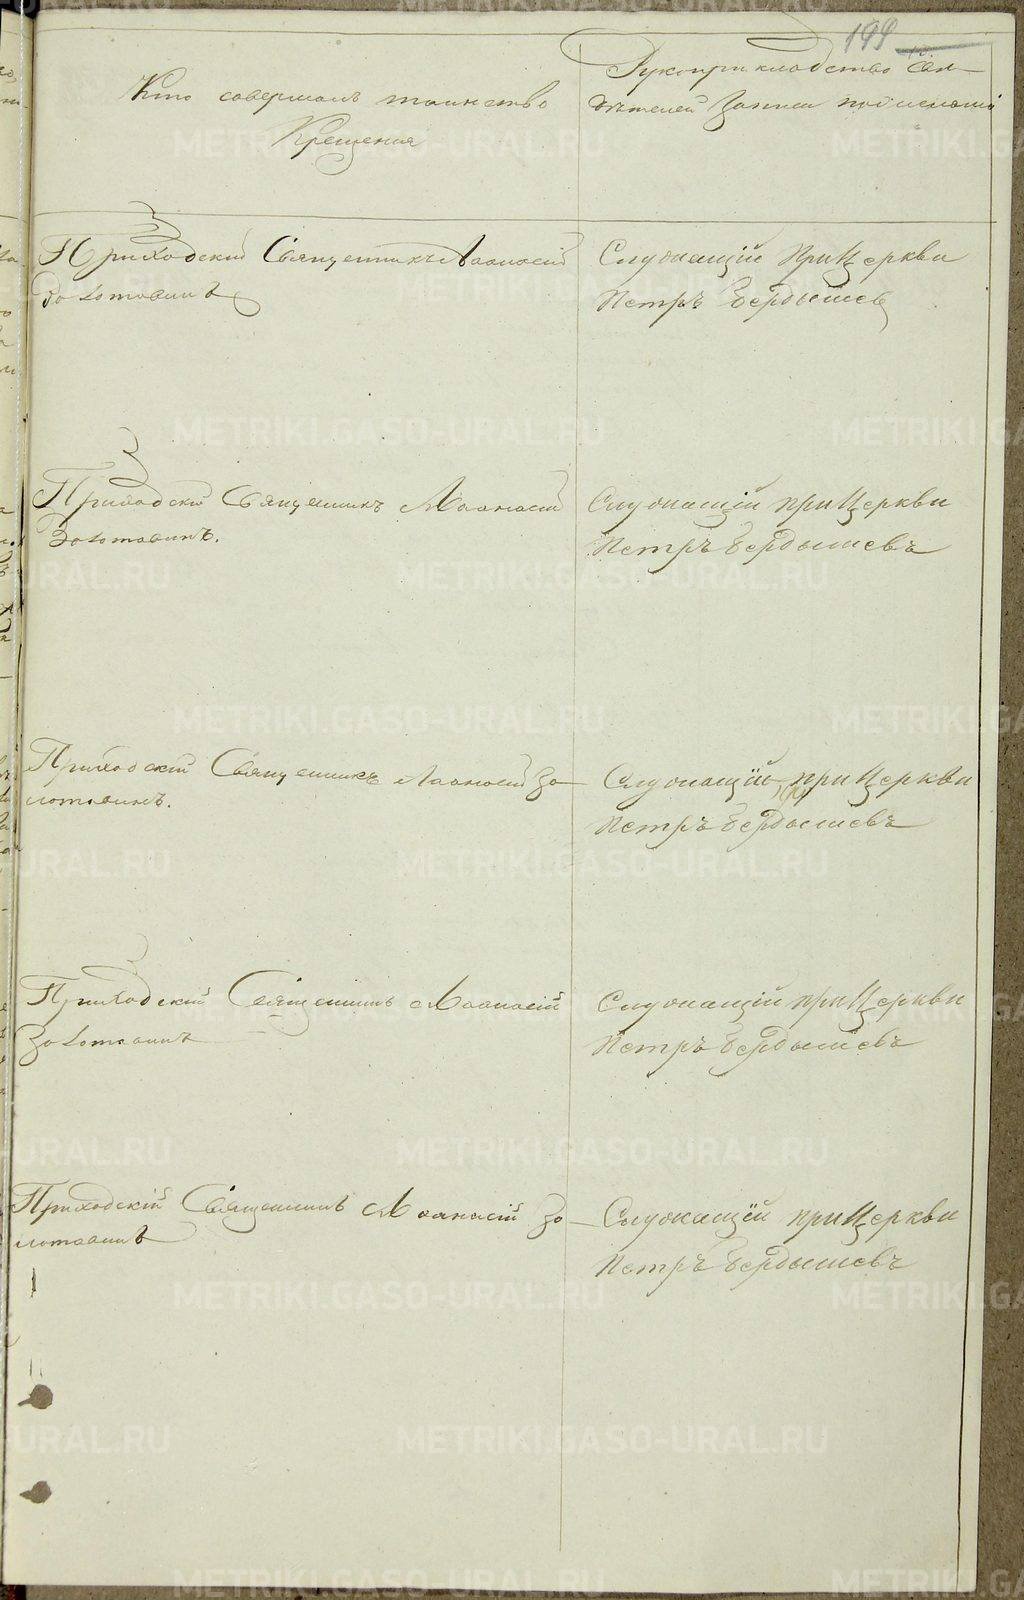 199
Кто совершалъ таинство
Крещения
Рукоприкладство Сви-
дѣтелей записи по желанiю
Приходскiй Священникъ Аѳанасiй
Золотавинъ
Служащiй при Церкви
Петръ Бердышев
Приходскiй Священникъ Аѳанасiй
Золотавинъ.
Служащiй при Церкви
Петръ Бердышевъ
Приходскiй Священникъ Аѳанасiй Зо-
лотавинъ.
Служащiй при Церкви
Петръ Бердышевъ
Приходскiй Священникъ Аѳанасiй
Золотавинъ
Служащiй при Церкви
Петръ Бердышевъ
Приходскiй Священникъ Аѳанасiй Зо-
лотавинъ
Служащiй при Церкви
Петръ Бердышевъ
METRIKI.GASO-URAL.RU